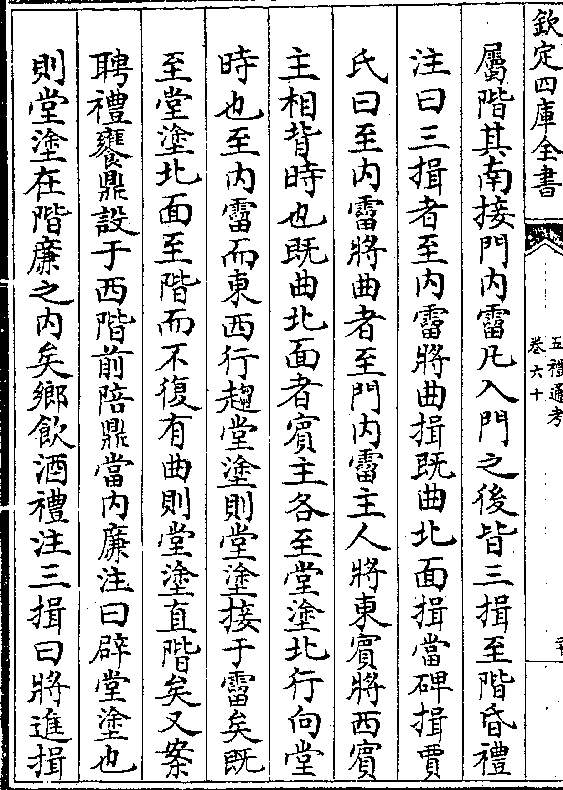 欽定四庫全書
五禮通考
卷六十
屬階其南接門内霤凡入門之後皆三揖至階昏禮
注曰三揖者至内霤將曲揖既曲北面揖當碑揖賈
氏曰至内霤將曲者至門内霤主人將東賓將西賓
主相背時也既曲北面者賓主各至堂塗北行向堂
時也至内霤而東西行趨堂塗則堂塗接于霤矣既
至堂塗北面至階而不復有曲則堂塗直階矣又案
聘禮饔鼎設于西階前陪鼎當内廉注曰辟堂塗也
則堂塗在階廉之内矣鄉飲酒禮注三揖曰將進揖